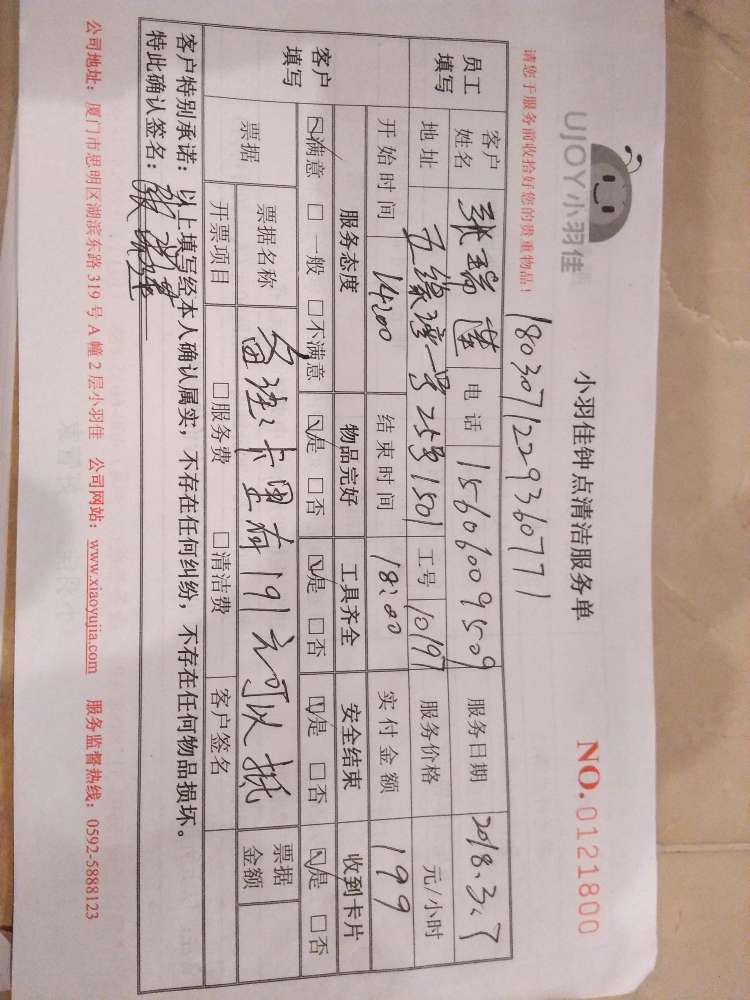 UJOY小羽佳
小羽佳钟点清洁服务单
NO.0121800
请您于服务前收拾好您的贵重物品!
180307122936077 1
员工填写 客户姓名 张瑞莲 电话 15606009509 服务日期 2018.3.7
地址 五缘湾一号25号1501 工号 10197 服务价格 元/小时
开始时间 14:00 结束时间 18:00 实付金额 199
客户填写 服务态度 物品完好 工具齐全 安全结束 收到卡片
☑满意 □一般 □不满意 ☑是 □否 ☑是 □否 ☑是 □否 ☑是 □否
票据 票据名称 备注:卡里有191元可以抵 票据金额
开票项目 □服务费 □清洁费 客户签名
客户特别承诺:以上填写经本人确认属实,不存在任何纠纷,不存在任何物品损坏。
特此确认签名:
公司地址:厦门市思明区湖滨东路319号A幢2层小羽佳 公司网站:www.xiaoyujia.com 服务监督热线:0592-5888123